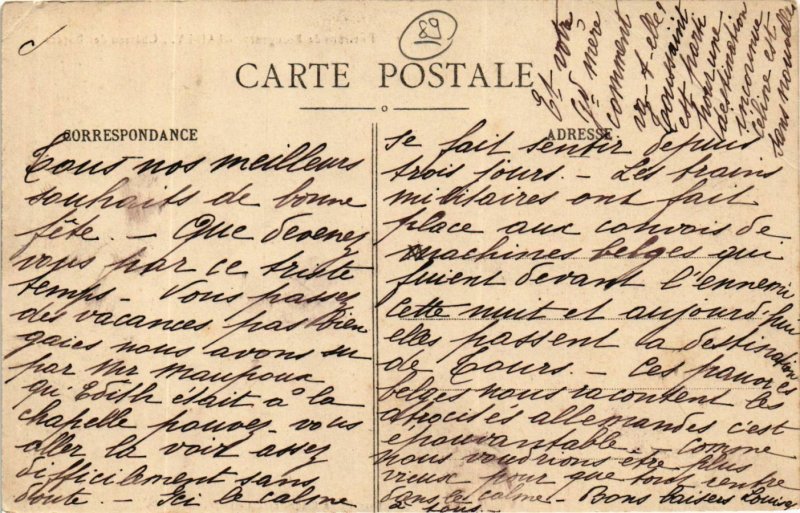 89
CARTE POSTALE
CORRESPONDANCE
ADRESSE
Tous nos meilleurs
souhaits de bonne
fête. - Que devenez
vous par ce triste
temps - Vous passez
des vacances pas bien
gaies nous avons su
par Mr Maupoux
qu'Edith était à la
chapelle pouvez-vous
aller la voir assez
difficilement sans
doute. - Ici le calme
se fait sentir depuis
trois jours. - Les trains
militaires ont fait
place aux convois de
machines belges qui
fuient devant l'ennemi
cette nuit et aujourd'hui
elles passent à destination
de Tours. - Ces pauvres
belges nous racontent les
atrocités allemandes c'est
epouvantable. - Comme
nous voudrions être plus
vieux pour que tout rentre
dans le calme - Bons baisers Louise
à tous -
Et votre
Gd mère
comment
va-t-elle?
Toussaint
est parti
pour une
destination
inconnue
Céline est
sans nouvelle